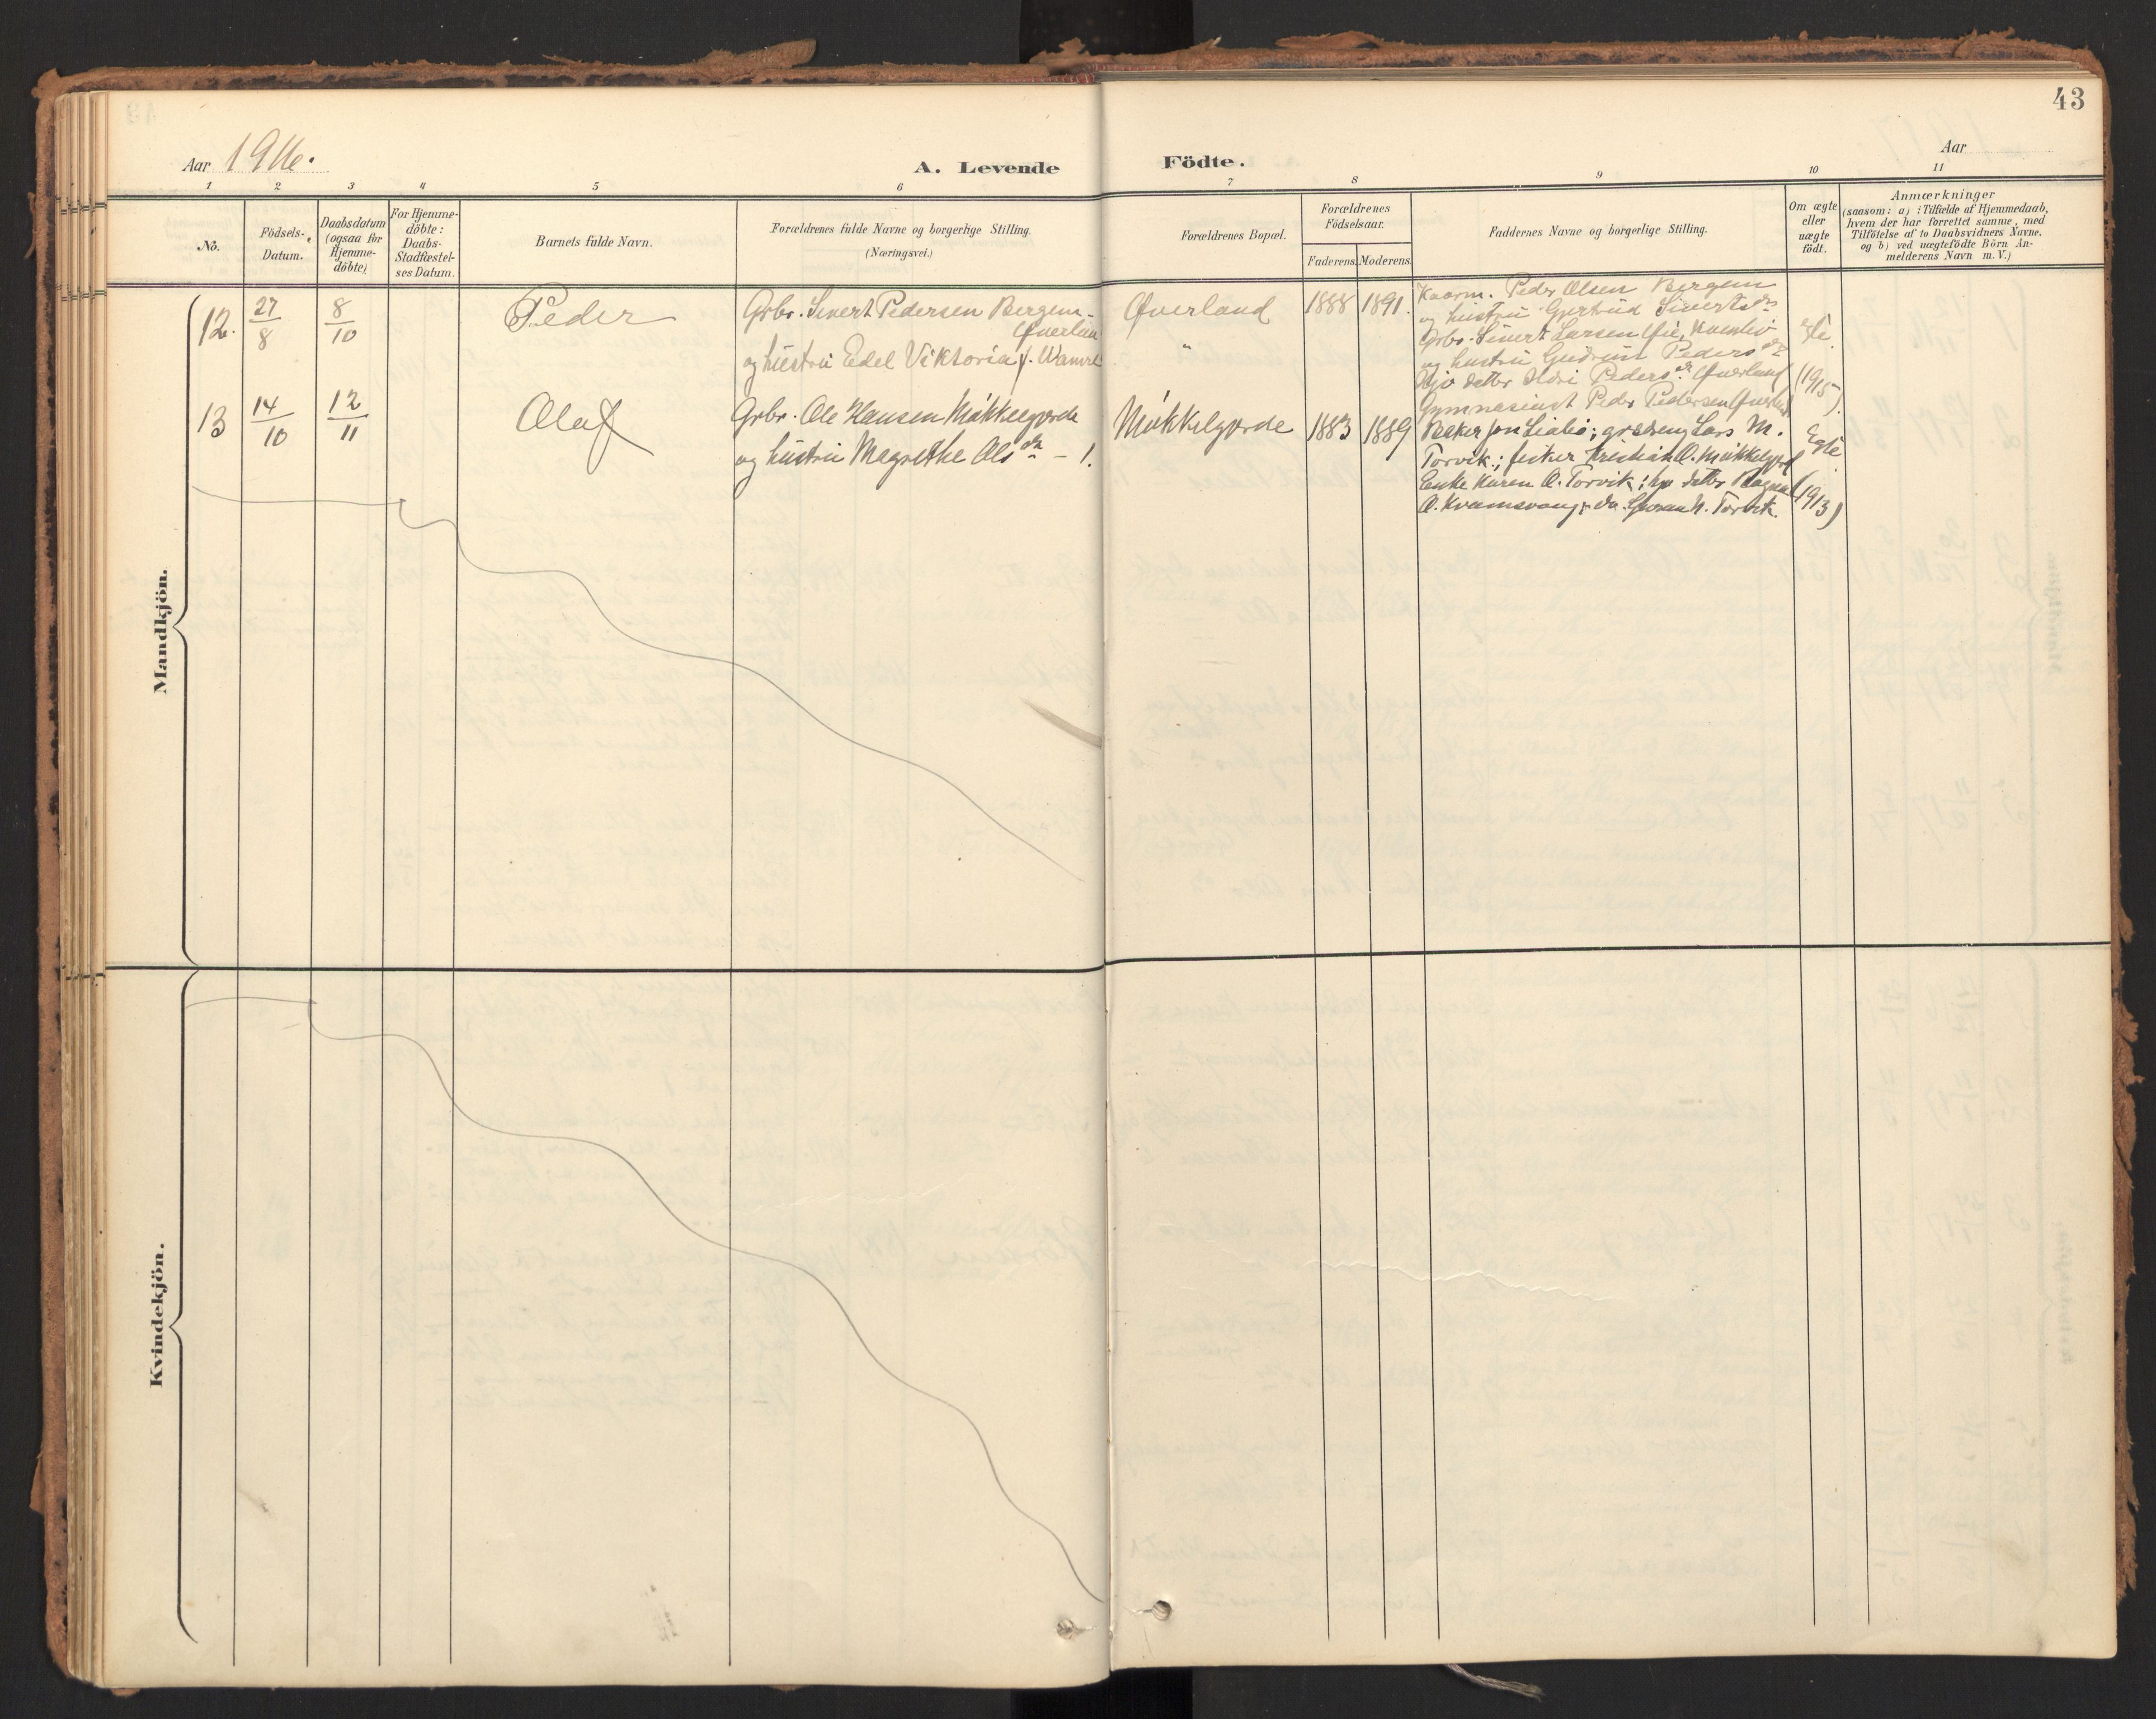 43
Aar 1916.
A. Levende Födte.
Aar
1 2 3 4 5 6 7 8 9 10 11
No.
Födsels-Datum.
Daabsdatum (ogsaa for Hjemme-döbte)
For Hjemme-döbte: Daabs-Stadfæstel-ses Datum.
Barnets fulde Navn.
Forældrenes fulde Navne og borgerlige Stilling.
(Næringsvei.)
Forældrenes Bopæl.
Forældrenes Födselsaar.
Faderens. Moderens.
Faddernes Navne og borgerlige Stilling.
Om ægte eller uægte födt.
Anmærkninger
(saasom: a) i Tilfælde af Hjemmedaab,
hvem der har forrettet samme, med
Tilföielse af to Daabsvidners Navne.
og b) ved uægtefödte Börn An-
melderens Navn m.V.)
Mandkjön.
12. 27/8 8/10 Peder
Grbr. Sivert Pedersen Bergem-
Øverland
og hustru Edel Viktoria f.
Øverland 1888 1891.
"
Kaarm. Peder Olsen Bergem
og hustru Gjertrud Siverts dr
Grbr. Sivert Larsen
og hustru Gudrun Peders dr
Peders dr Øverland
Gymnasiast Peder Pedersen Øverland
Egte
(1915).
13 14/10 12/11 Olaf
Grbr. Ole Hansen Mákkelgjerde
og hustru Magrethe Ols dr - 1.
Mákkelgjerde 1883 1889
Lars M.
Torvik; fisker Kristian O. Mákkelgjerd
Enke Karen O. Torvik;
O. N. Torvik.
Egte
(1913)
Kvindekjön.